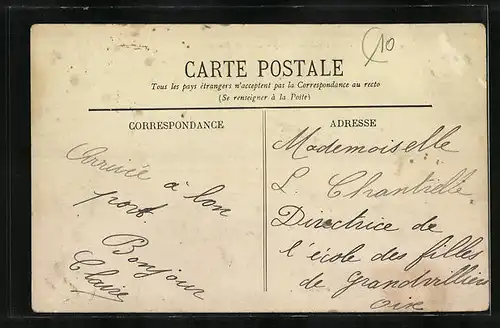 10
CARTE POSTALE
Tous les pays étrangers n'acceptent pas la Correspondance au recto
(Se renseigner à la Poste)
CORRESPONDANCE
Arrivée
à bon
port.
Bonjour
Claire
ADRESSE
Mademoiselle
L. Chantrelle
Directrice de
l'école des filles
de Grandvilliers
Oise